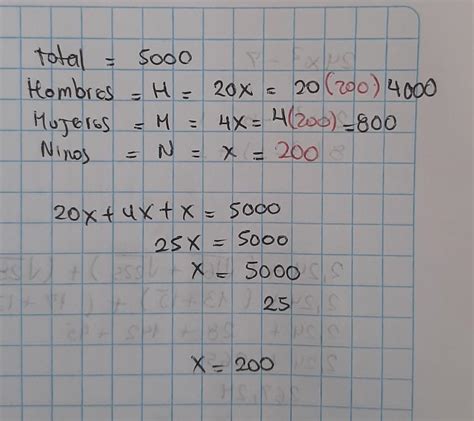 total = 5000
Hombres = H = 20x = 20(200) 4000
Mujeres = M = 4x = 4(200) = 800
Ninos = N = x = 200
20x + 4x + x = 5000
25x = 5000
x = 5000
25
x = 200